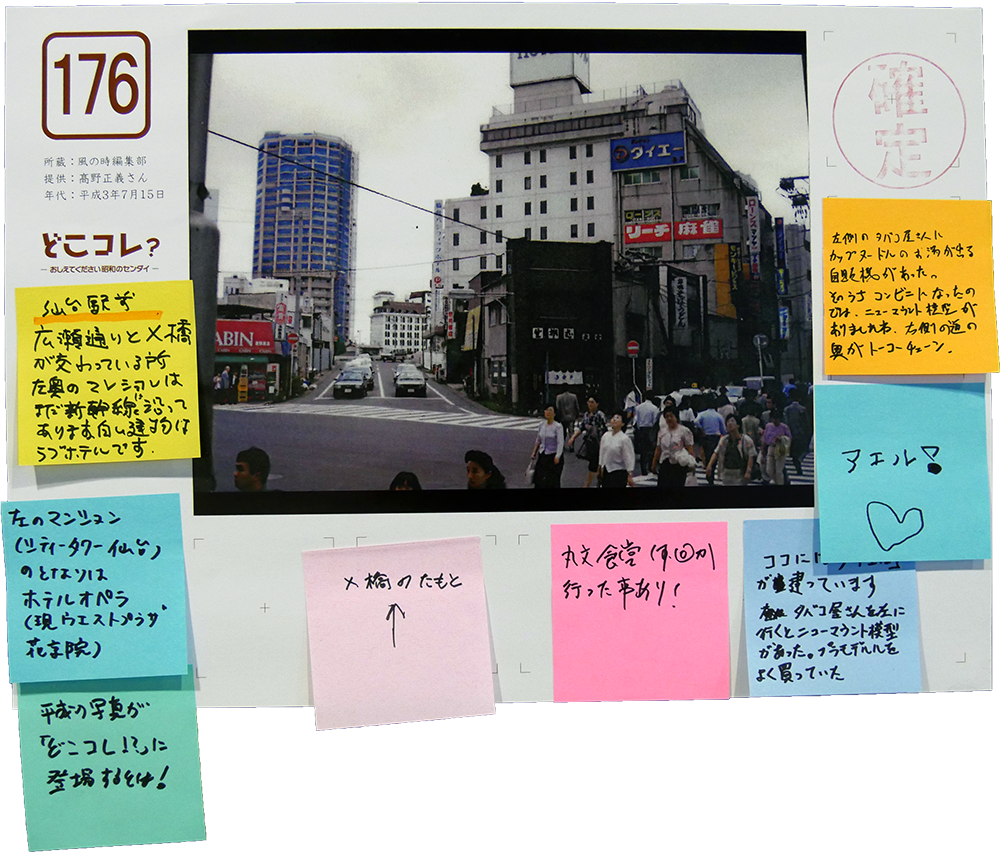 176
所蔵：風の時編集部
提供：髙野正義さん
年代：平成3年7月15日
どこコレ？
おしえてください昭和のセンダイ
確定
ダイエー
リーチ麻雀
CABIN
仙台駅前
広瀬通りとX橋
が交わっている所
左奥のマンションは
まだ新幹線に沿って
あります白い建物は
ラブホテルです.
左のマンション
(シティータワー仙台)
のとなりは
ホテルオペラ
(現ウエストプラザ
花京院)
平成の写真が
「どこコレ!?」に
登場するとは!
X橋のたもと
↑
丸文食堂
行った事あり!
ココに
が建っています
タバコ屋さんを左に
行くとニューマウント模型
があった。プラモデルを
よく買っていた
アエル!
左側のタバコ屋さんに
カップヌードルのお湯が出る
自販機があった。
そのうちコンビニとなったの
では、ニューマウント模型が
ありましたね. 右側の道の
奥がトーコーチェーン.